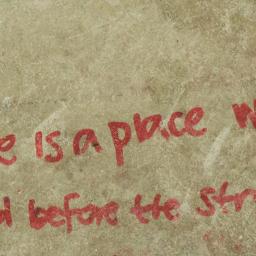 e is a place w
d before the str